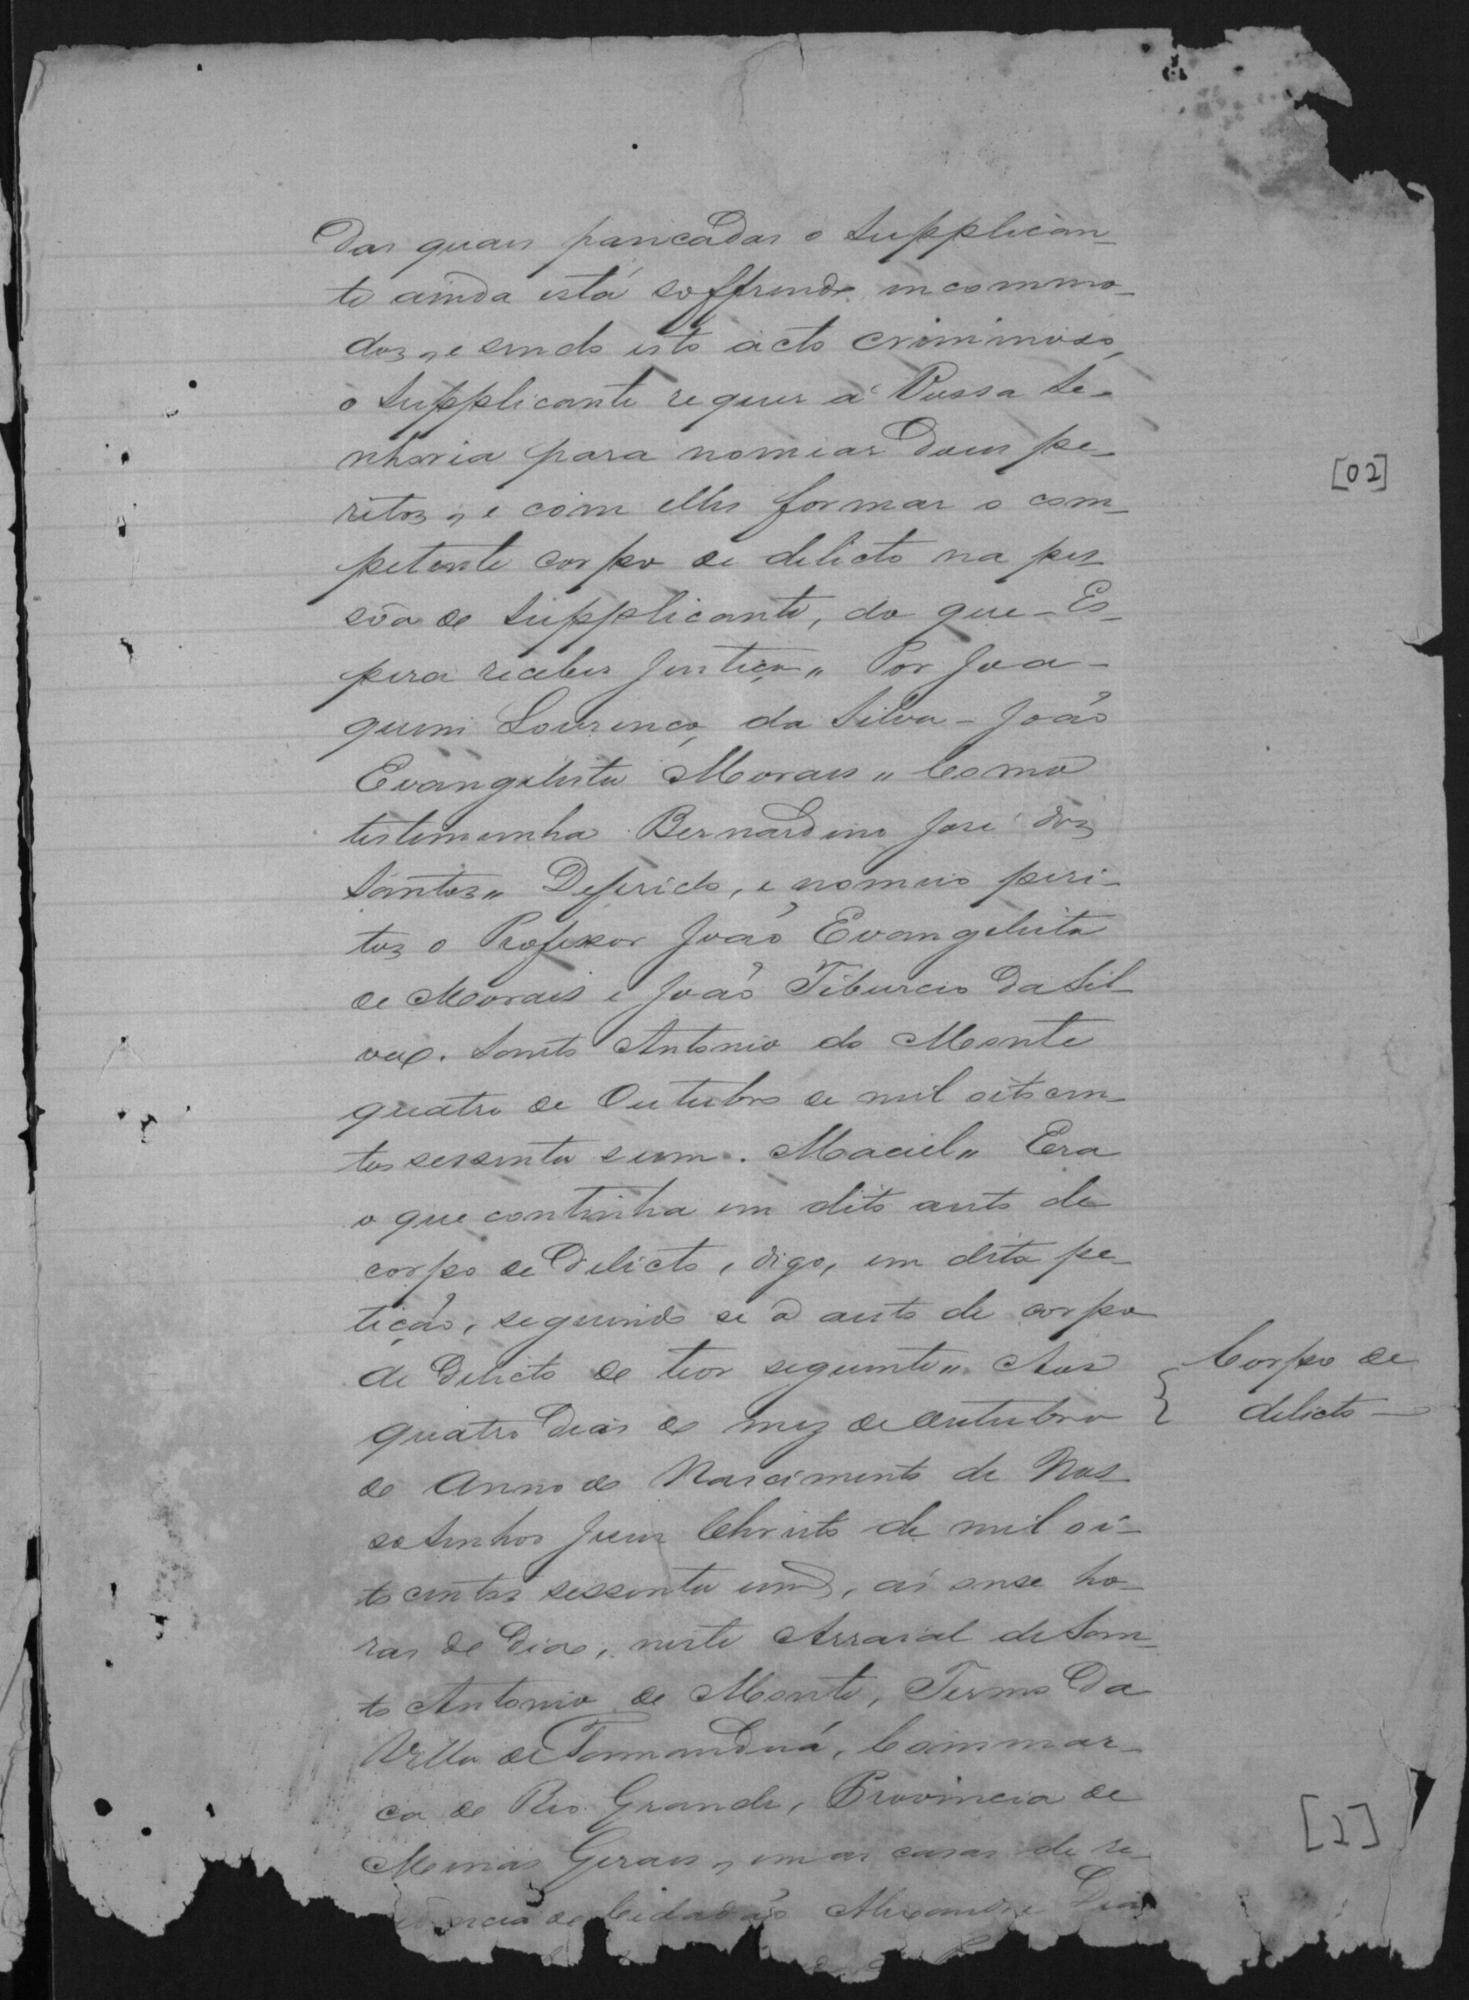 das quaes pancadas o Supplican-
te ainda está soffrendo incommo-
dos, e sendo isto acto criminoso,
o Supplicante requer á Vossa Se-
nhoria para nomear dous pe-
ritos, e com elles formar o com-
petente corpo de delicto na pes
sôa do Supplicante, do que - Es-
pera receber Justiça,, Por Joa-
quim Lourenço da Silva - João
Evangelista Moraes,, Como
testemunha Bernardino José dos
Santos,, Deferido, e nomeio peri-
tos o Professor João Evangelista
de Moraes e João Tiburcio da Sil-
va. Santo Antonio do Monte
quatro de Outubro de mil oitocen-
tos sessenta e um. Maciel,, Era
o que continha em dito auto de
corpo de delicto, digo, em dita pe-
tição, seguindo se o auto de corpo
de delicto do teor seguinte,, Aos
quatro dias do mez de Outubro
do Anno do Nascimento de Nos
so Senhor Jesus Christo de mil oi-
to centos sessenta um, ás onse ho-
ras do dia, neste Arraial de San-
to Antonio do Monte, Termo da
Villa de Tamanduá, Commar-
ca do Rio Grande, Provincia de
Minas Geraes, em as casas de re
do Cidadão Alexandre Dias
Corpo de
delicto
[02]
[2]